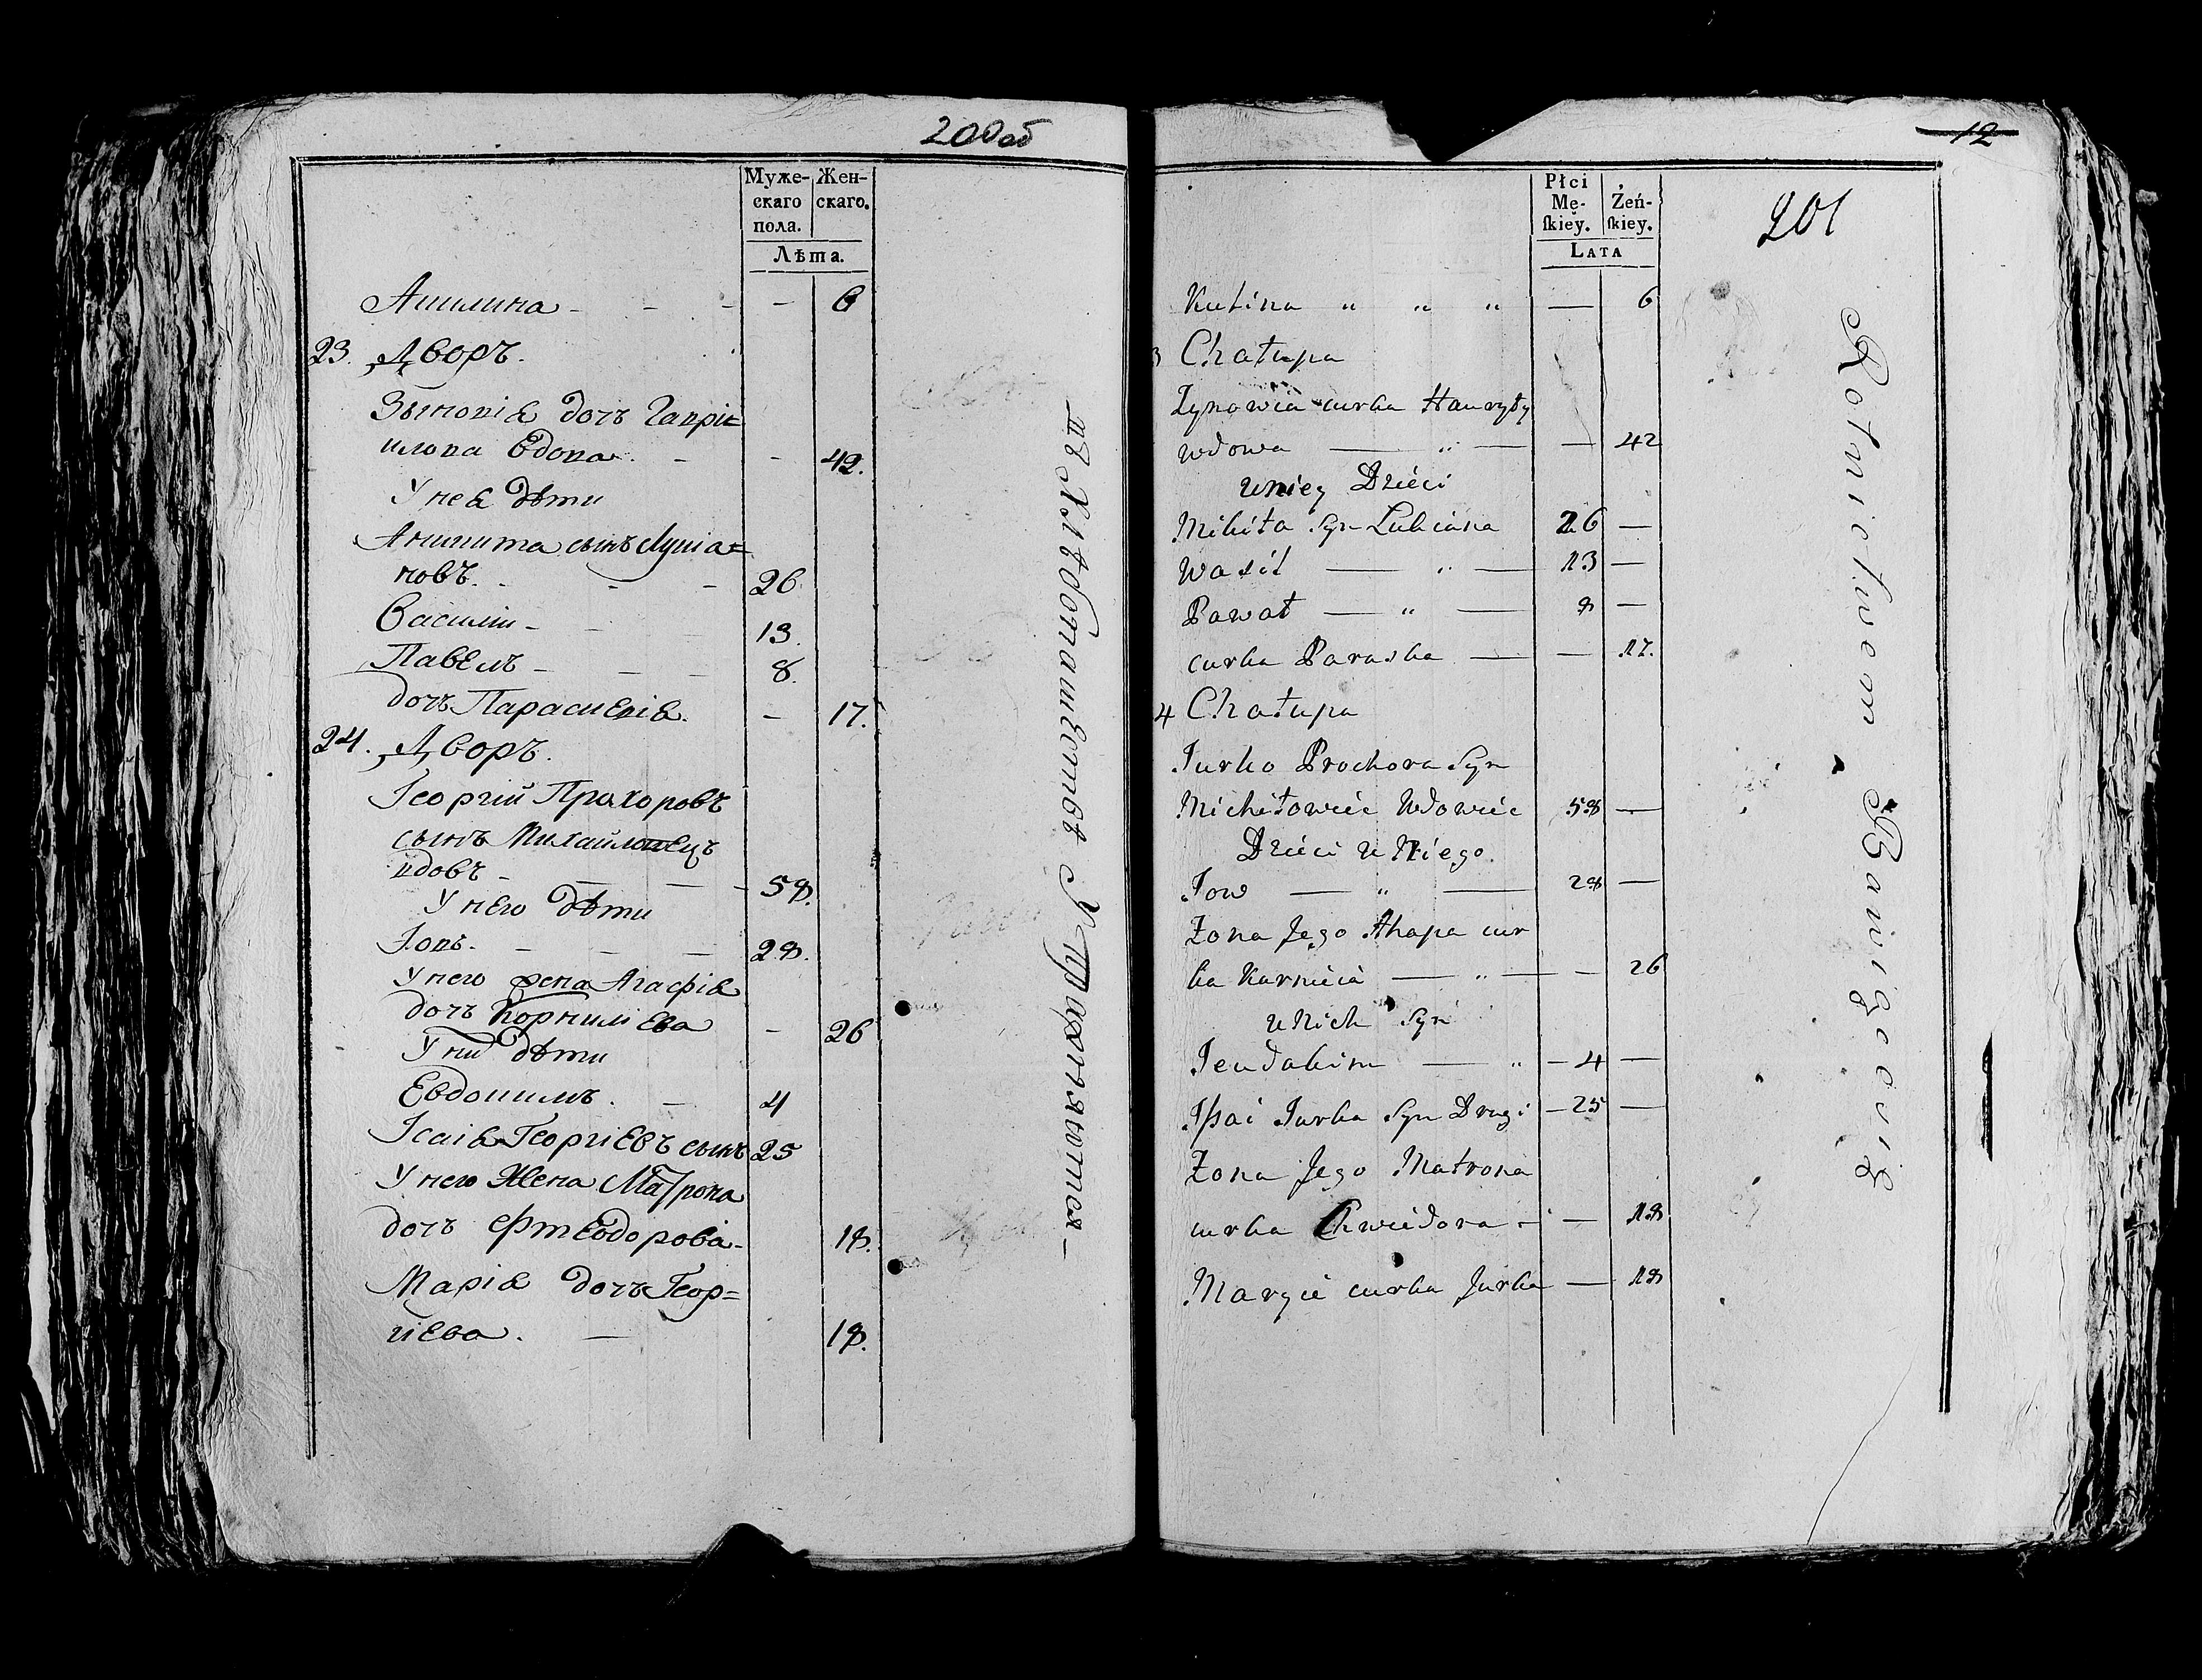 200об
Муже- Жен-
скаго скаго.
пола.
Лѣта.
Акилина - - - - 6
23. Дворъ.
Зѣновія дочъ Гаври=
илова вдова. - - 42.
У нея дѣти
Никита сынъ Лукіа=
новъ. - - - 26
Василій - - - 13.
Павелъ - - - 8.
дочъ Параскевія. - 17.
24. Дворъ.
Георгій Прохоровъ
сынъ Михайловецъ
вдовъ - - - - 58.
У него дѣти
Іовъ. - - - 28.
У него жена Агафія
дочъ Корниліева - 26
У них дѣти
Евдокимъ. - 4
Ісаія Георгіевъ сынъ 25
У него Жена Матрона
дочъ Фтеодорова - 18.
Марія дочъ Геор=
гіева. - 18.
въ Хлѣбопашествѣ Упражняются -
12
201
Płci Żeń-
Mę- skiey.
skiey.
Lata
Kulina " " " — 6
3 Chałupa
Zynowia curka Hauryły
wdowa — " — — 42
u niey Dzieci
Mikita Syn Lukiana 26 —
Wasil — " — 13 —
Pawał — " — 8 —
curka Paraska — — 17.
4 Chałupa
Jurko Prochora Syn
Michiłowiec Wdowiec 58 —
Dzieci u Niego.
Jow — " — 28 —
Żona Jego Ahapa cur
ka Karnieia — " — — 26
u Nich Syn
Jeudakim — " — 4 —
Isai Jurka Syn Drugi — 25 —
Żona Jego Matrona
curka Chwiedora - — 18
Maryie curka Jurka — 18
Rolnictwem Bawią się